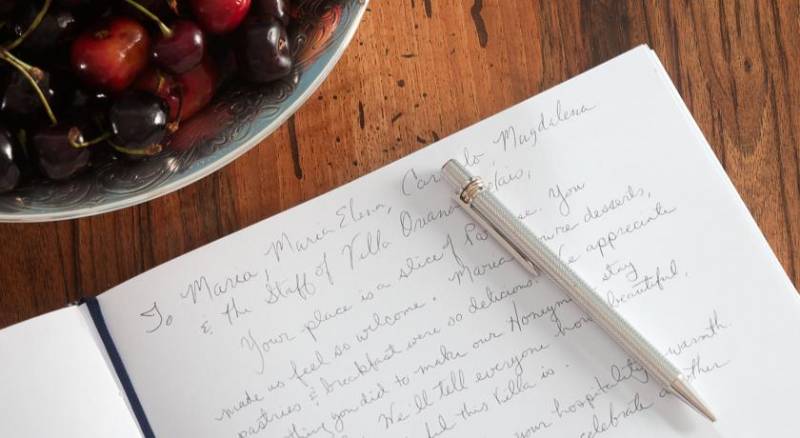 To Maria, Maria Elena, Camilo, Magdalena
& the Staff of Villa
Your place is a slice of You
made us feel so welcome. Maria desserts,
pastries & breakfast were so delicious. We appreciate
you did to make our Honeymoon stay
We'll tell everyone how beautiful,
this Villa is.
your hospitality warmth
celebrate another